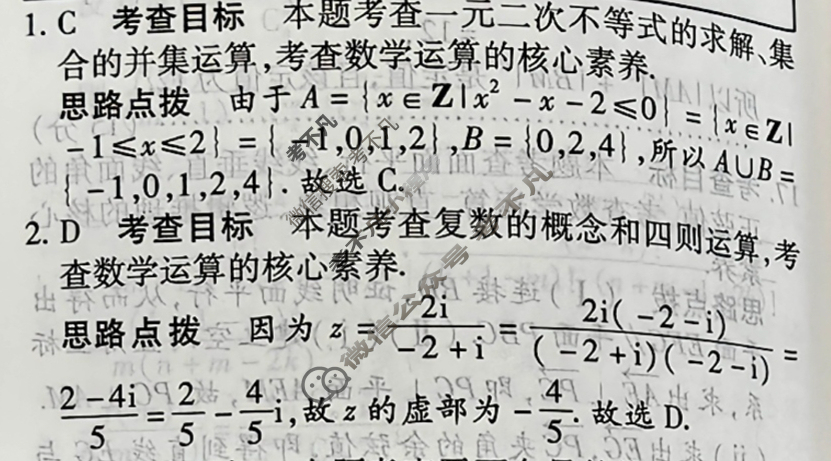 1. C 考查目标 本题考查一元二次不等式的求解、集
合的并集运算,考查数学运算的核心素养.
思路点拨 由于 A = {x∈Z|x² - x - 2≤0} = {x∈Z|
-1≤x≤2} = { -1,0,1,2},B = {0,2,4},所以 A∪B =
{ -1,0,1,2,4}. 故选 C.
2. D 考查目标 本题考查复数的概念和四则运算,考
查数学运算的核心素养.
思路点拨 因为 z = 2i/(-2 + i) = 2i( -2 - i)/(( -2 + i)( -2 - i)) =
(2 - 4i)/5 = 2/5 - 4/5 i,故 z 的虚部为 - 4/5. 故选 D.